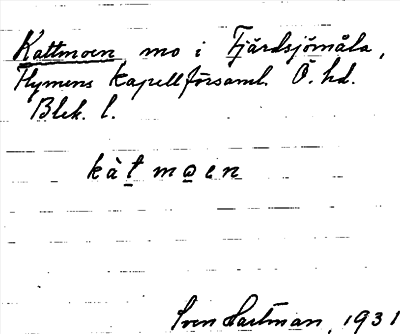 Kattmoen, mo i Fjärdsjömåla,
Flymens kapellförsaml. Ö. hd.
Blek. l.
kàt mo̲en
Sven Hartman, 1931